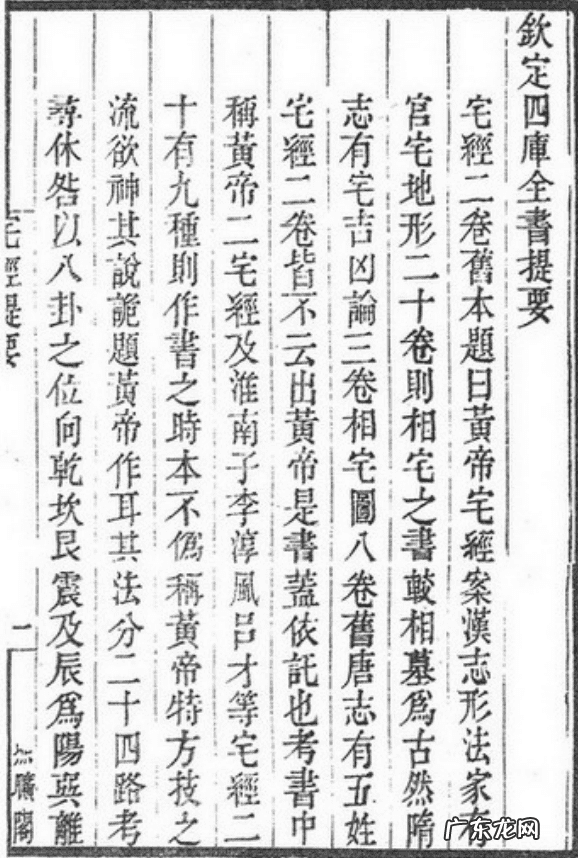 欽定四庫全書提要
宅經二卷舊本題曰黃帝宅經案漢志形法家有
宮宅地形二十卷則相宅之書較相墓爲古然隋
志有宅吉凶論三卷相宅圖八卷舊唐志有五姓
宅經二卷皆不云出黃帝是書蓋依託也考書中
稱黃帝二宅經及淮南子李淳風呂才等宅經二
十有九種則作書之時本不僞稱黃帝特方技之
流欲神其說詭題黃帝作耳其法分二十四路考
尋休咎以八卦之位向乾坎艮震及辰爲陽巽離
宅經提要
一
廣東龙网